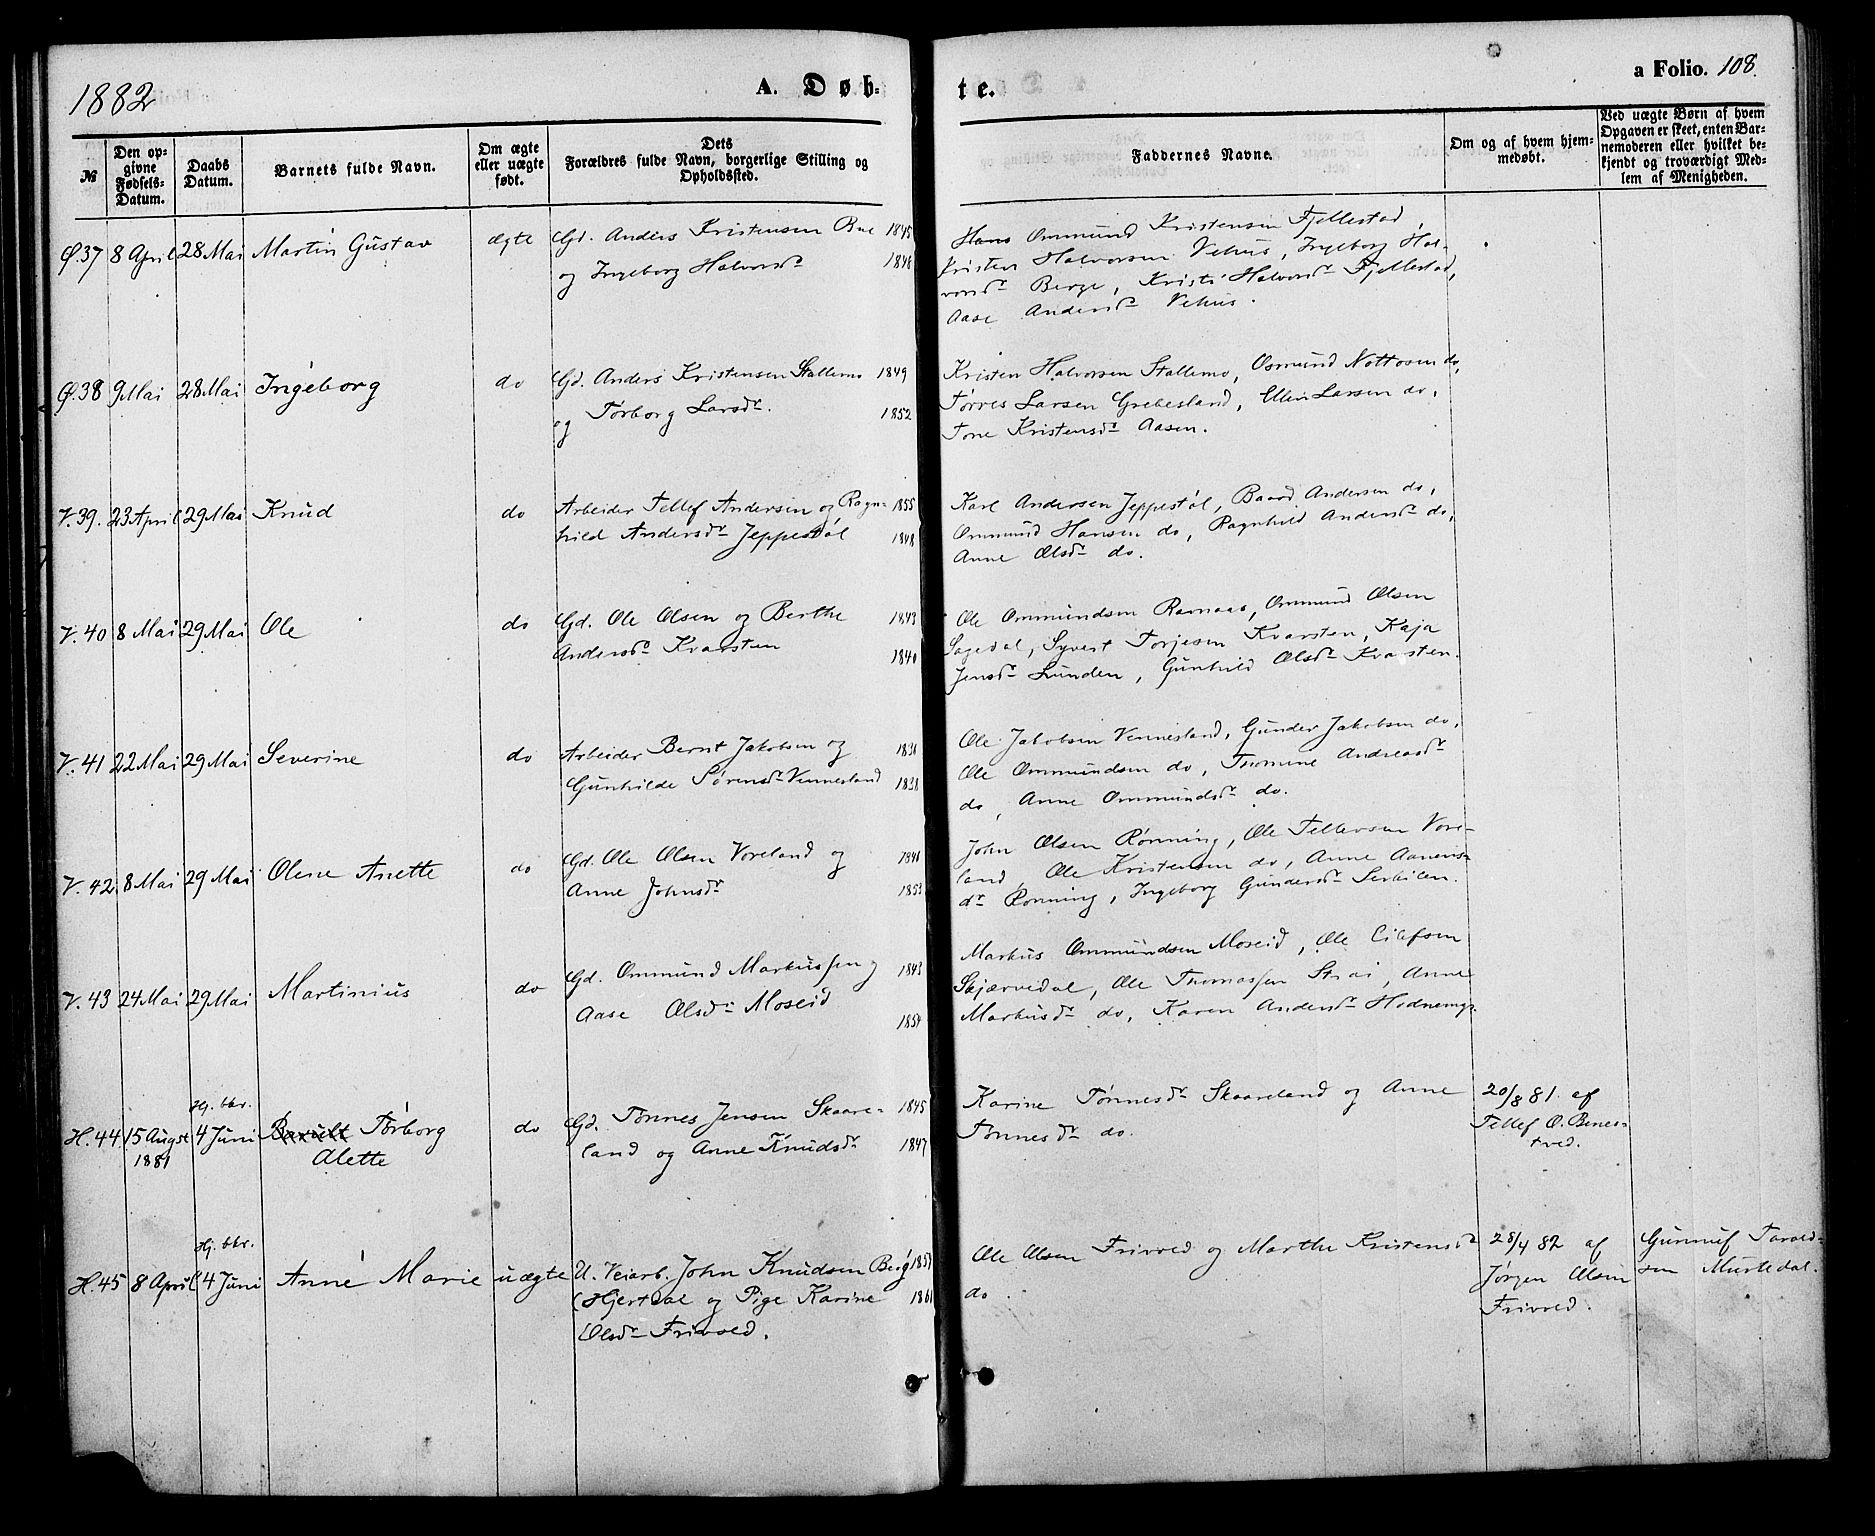 1882
A. Døb-
te.
a Folio. 108.
№
Den op-
givne
Fødsels-
Datum.
Daabs
Datum.
Barnets fulde Navn.
Om ægte
eller uægte
født.
Dets
Forældres fulde Navn, borgerlige Stilling og
Opholdssted.
Faddernes Navne.
Om og af hvem hjem-
medøbt.
Ved uægte Børn af hvem
Opgaven er skeet, enten Bar-
nemoderen eller hvilket be-
kjendt og troværdigt Med-
lem af Menigheden.
Ø.37 8 April 28 Mai Martin Gustav ægte Gd. Anders Kristensen 1845
og Ingeborg Halvorsdr 1846
Hans Ommund Kristensen Fjellestad,
Kristen Halvorsen Vehus, Ingeborg Hal-
vorsdr Berge, Kristi Halvorsdr Fjellestad,
Aase Andersdr Vehus.
Ø.38 9 Mai 28 Mai Ingeborg do Gd. Anders Kristensen Stallemo 1849
og Torborg Larsdr. 1852
Kristen Halvorsen Stallemo, Osmund Nottosen do,
Tørres Larsen Grebesland, Ellen Larsen do,
Tone Kristensdr Aasen.
V.39. 23 April 29 Mai Knud do Arbeider Tellef Andersen og Ragn- 1855
hild Andersdr Jeppestøl 1848
Karl Andersen Jeppestøl, Baard Andersen do,
Ommund Hansen do, Ragnhild Andersdr do,
Anne Olsdr do.
V.40 8 Mai 29 Mai Ole do Gd. Ole Olsen og Berthe 1843
Andersdr Kvarsten 1840
Ole Ommundsen Ravnaas, Ommund Olsen
Sagedal, Syvert Torjesen Kvarsten, Kaja
Jensdr Lunden, Gunhild Olsdr Kvarsten.
V.41 22 Mai 29 Mai Severine do Arbeider Bernt Jakobsen og
Gunhilde Sørensdr Vennesland 1838
Ole Jakobsen Vennesland, Gunder Jakobsen do,
Ole Ommundsen do, Thomine Andreasdr
do, Anne Ommundsdr do.
V.42 8 Mai 29 Mai Olene Anette do Gd. Ole Olsen Voreland og 1846
Anne Johnsdr 1853
John Olsen Rønning, Ole Tellevsen Vore-
land, Ole Kristensen do, Anne Aanens-
dr Rønning, Ingeborg Gundersdr
V.43 24 Mai 29 Mai Martinius do Gd. Ommund Markussen og 1843
Aase Olsdr Moseid
Markus Ommundsen Moseid, Ole Eilefsen
Skjærvedal, Ole Thomassen Strai, Anne
Markusdr do, Karen Andersdr
Hj. bkr.
H.44 15 Augst 4 Juni Torborg do Gd. Tønnes Jensen Skaare- 1845
1881 Alette land og Anne Knudsdr 1847
Karine Tønnesdr Skaareland og Anne
Tønnesdr do.
20/8 81. af
Tellef O. Benes-
tved.
Hj. bkr.
H.45 8 April 4 Juni Anne Marie uægte U. Veiarb. John Knudsen Berg
(Hjertdal og Pige Karine 1861
Olsdr Frivold.
Ole Olsen Frivold og Marthe Kristensdr
do.
28/4 82 af
Jørgen Olsen
Frivold.
Gunnuf Tarald-
sen